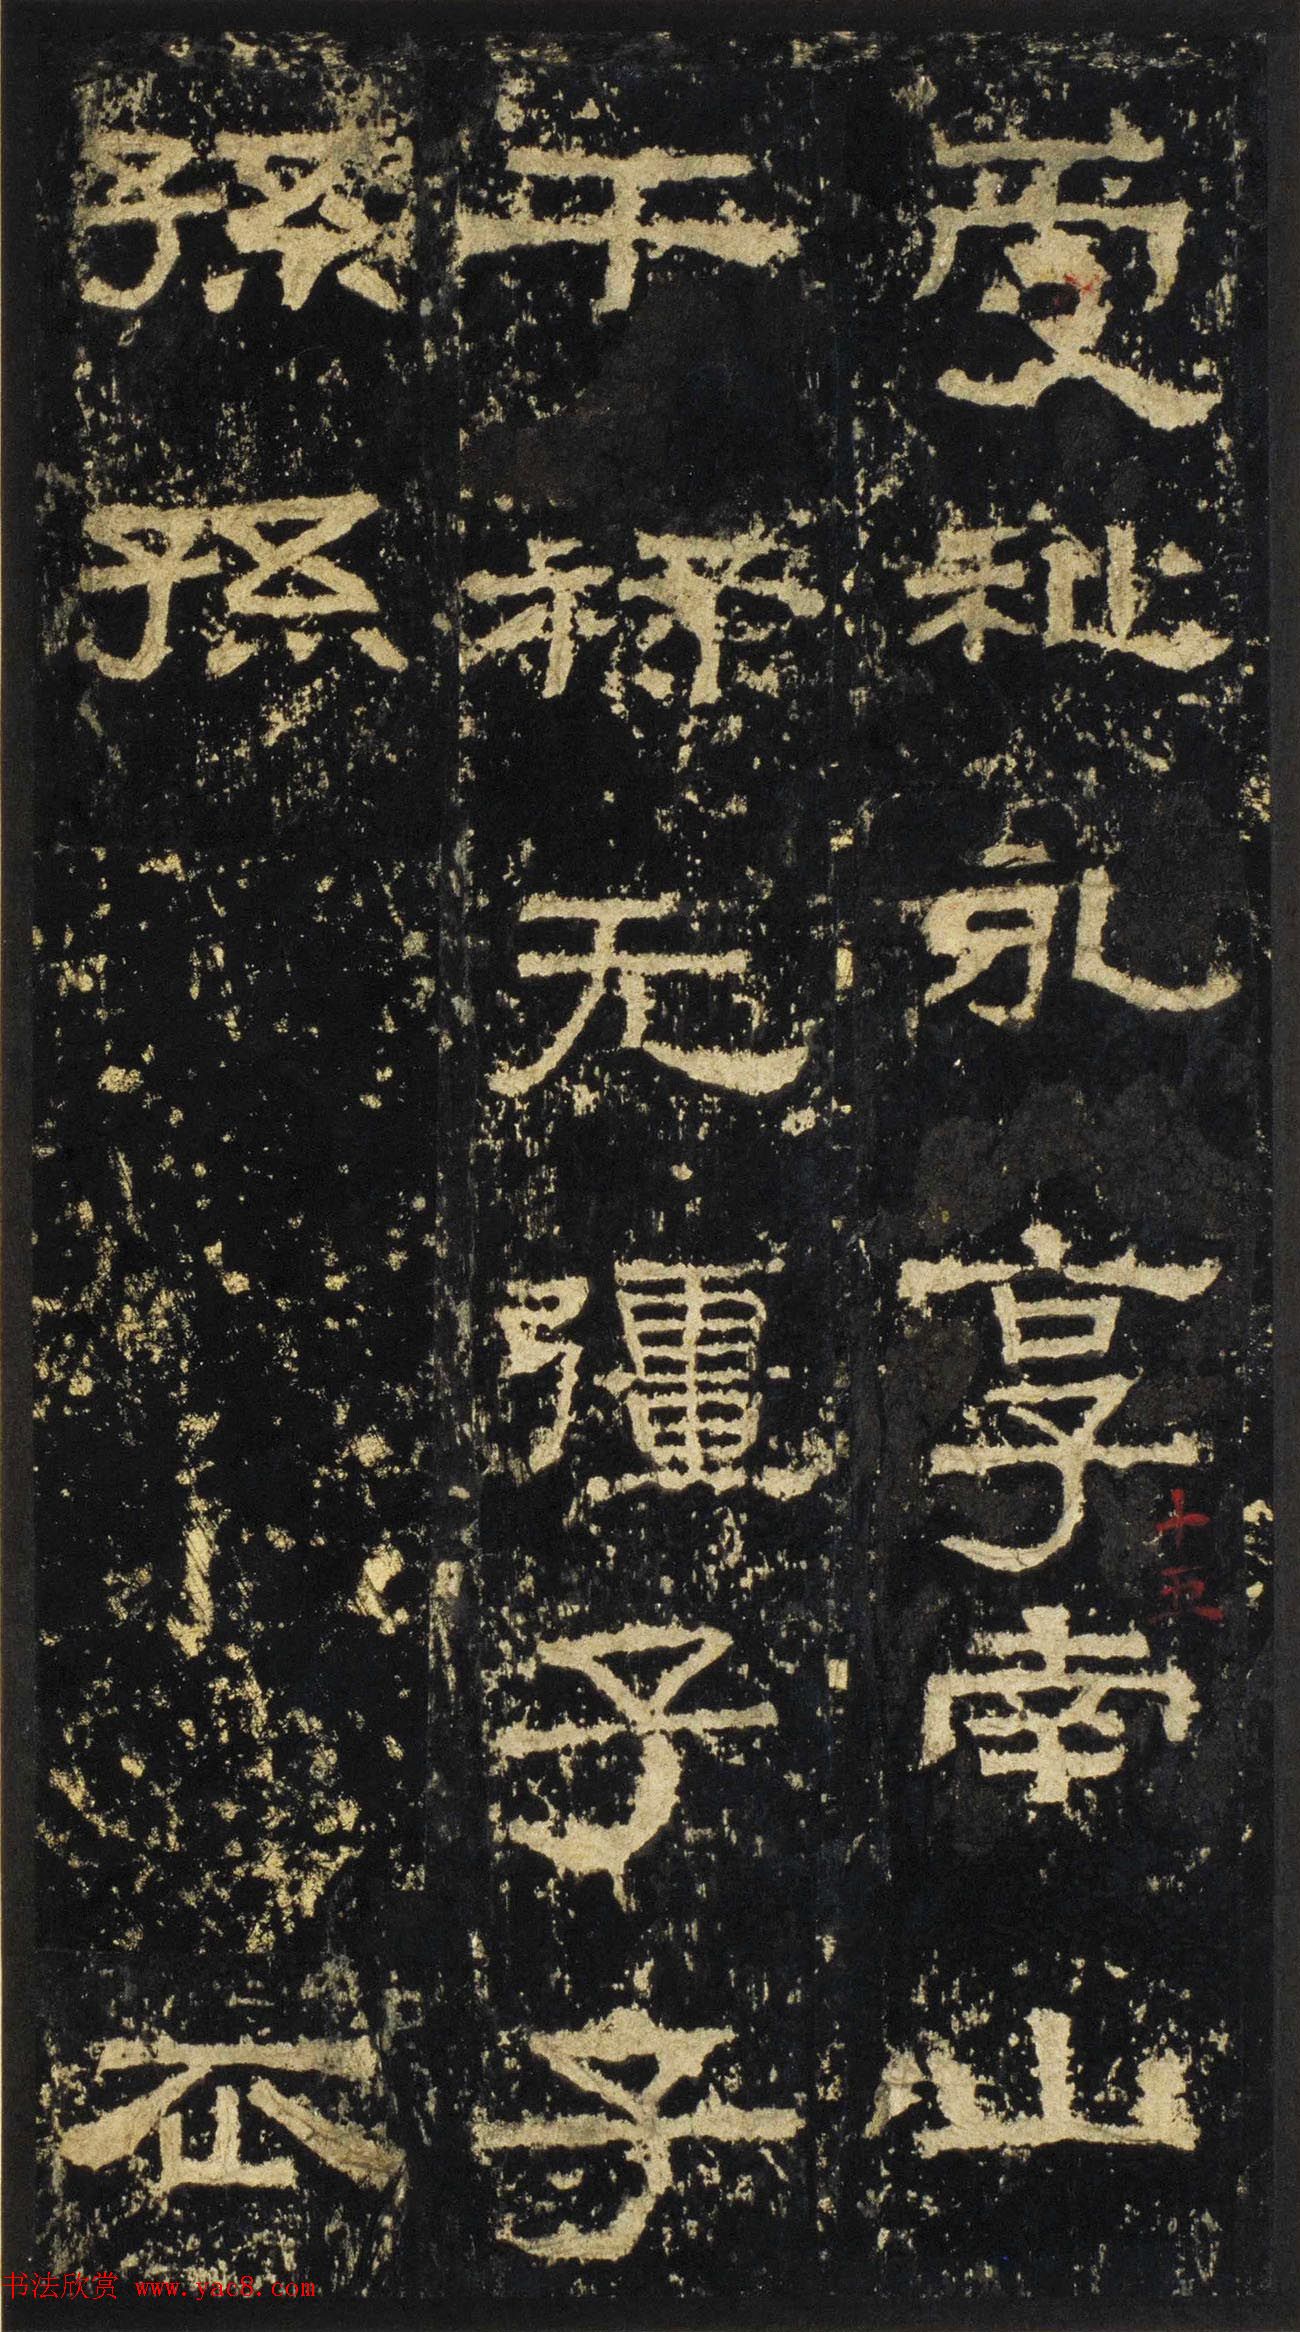 受祉永享南山
干祿无彊子子
孫孫
十五
书法欣赏 www.yac8.com